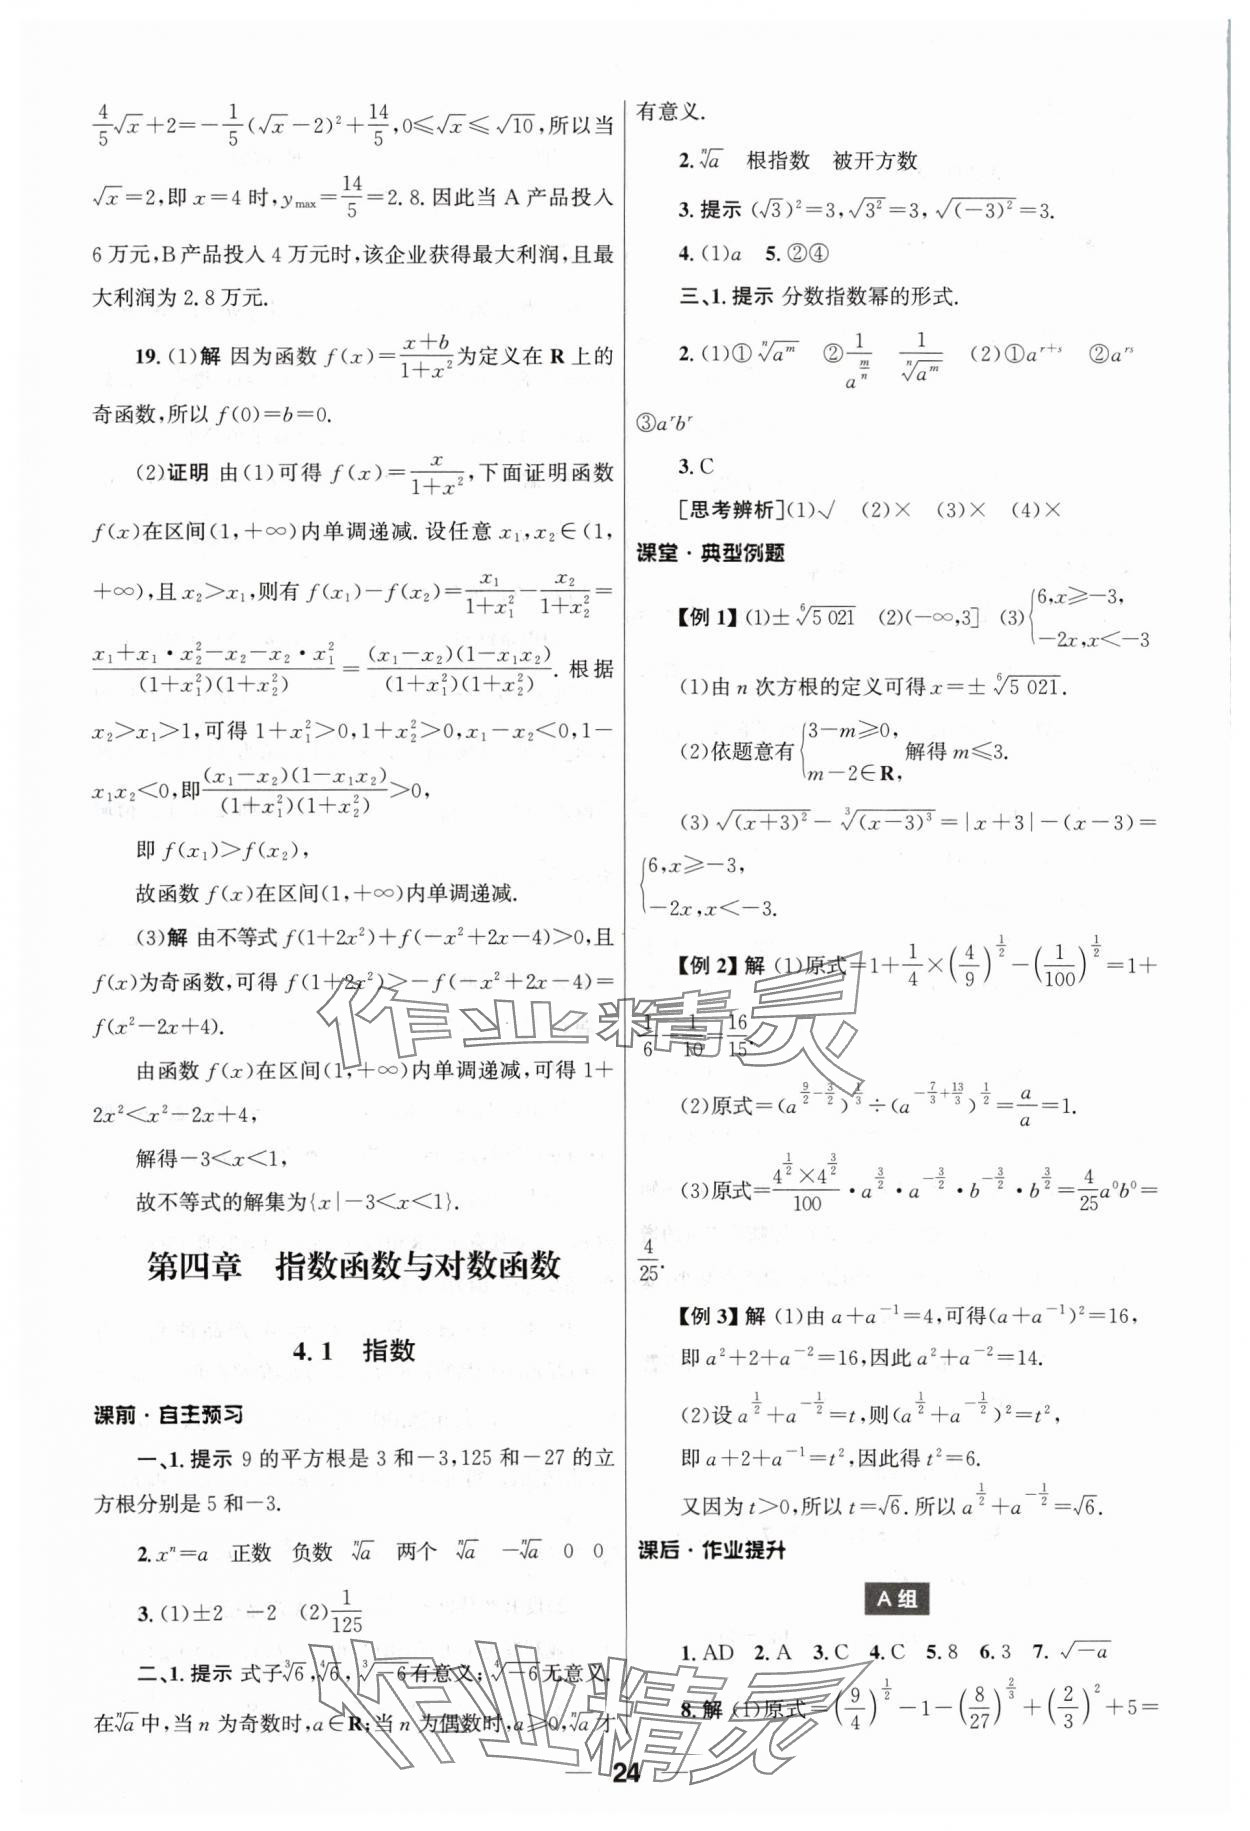 $\frac{4}{5}\sqrt{x}+2=-\frac{1}{5}(\sqrt{x}-2)^2+\frac{14}{5}$,0≤$\sqrt{x}$≤$\sqrt{10}$,所以当
$\sqrt{x}$=2,即 x=4 时,$y_{max}=\frac{14}{5}$=2.8.因此当 A 产品投入
6 万元,B产品投入 4 万元时,该企业获得最大利润,且最
大利润为 2.8 万元.
19.(1)解 因为函数 $f(x)=\frac{x+b}{1+x^2}$为定义在 R 上的
奇函数,所以 f(0)=b=0.
(2)证明 由(1)可得 $f(x)=\frac{x}{1+x^2}$,下面证明函数
f(x)在区间(1,+∞)内单调递减.设任意 $x_1,x_2$∈(1,
+∞),且 $x_2>x_1$,则有 $f(x_1)-f(x_2)=\frac{x_1}{1+x_1^2}-\frac{x_2}{1+x_2^2}=$
$\frac{x_1+x_1·x_2^2-x_2-x_2·x_1^2}{(1+x_1^2)(1+x_2^2)}=\frac{(x_1-x_2)(1-x_1x_2)}{(1+x_1^2)(1+x_2^2)}$.根据
$x_2>x_1>1$,可得 $1+x_1^2>0,1+x_2^2>0,x_1-x_2<0,1-$
$x_1x_2<0$,即$\frac{(x_1-x_2)(1-x_1x_2)}{(1+x_1^2)(1+x_2^2)}>0$,
即 $f(x_1)>f(x_2)$,
故函数 f(x)在区间(1,+∞)内单调递减.
(3)解 由不等式 $f(1+2x^2)+f(-x^2+2x-4)>0$,且
f(x)为奇函数,可得 $f(1+2x^2)>-f(-x^2+2x-4)=$
$f(x^2-2x+4)$.
由函数 f(x)在区间(1,+∞)内单调递减,可得 1+
$2x^2<x^2-2x+4$,
解得-3<x<1,
故不等式的解集为{x|-3<x<1}.
第四章 指数函数与对数函数
4.1 指数
课前·自主预习
一、1.提示 9 的平方根是 3 和-3,125 和-27 的立
方根分别是 5 和-3.
2.$x^n=a$ 正数 负数 $\sqrt[n]{a}$ 两个 $\sqrt[n]{a}$ $-\sqrt[n]{a}$ 0 0
3.(1)±2 -2 (2)$\frac{1}{125}$
二、1.提示 式子$\sqrt[3]{6},\sqrt[4]{6},\sqrt[3]{-6}$有意义;$\sqrt[4]{-6}$无意义.
在$\sqrt[n]{a}$中,当 n 为奇数时,a∈R;当 n 为偶数时,a≥0,$\sqrt[n]{a}$才
有意义.
2.$\sqrt[n]{a}$ 根指数 被开方数
3.提示 $(\sqrt{3})^2=3,\sqrt{3^2}=3,\sqrt{(-3)^2}=3$.
4.(1)a 5.②④
三、1.提示 分数指数幂的形式.
2.(1)①$\sqrt[n]{a^m}$ ②$\frac{1}{a^{\frac{m}{n}}}$ $\frac{1}{\sqrt[n]{a^m}}$ (2)①$a^{r+s}$ ②$a^{rs}$
③$a^rb^r$
3.C
[思考辨析](1)√ (2)× (3)× (4)×
课堂·典型例题
【例 1】(1)±$\sqrt[6]{5\ 021}$ (2)(-∞,3] (3)$\begin{cases}6,x≥-3,\\-2x,x<-3\end{cases}$
(1)由 n 次方根的定义可得 x=±$\sqrt[6]{5\ 021}$.
(2)依题意有$\begin{cases}3-m≥0,\\m-2∈R,\end{cases}$解得 m≤3.
(3)$\sqrt{(x+3)^2}-\sqrt[3]{(x-3)^3}=|x+3|-(x-3)=$
$\begin{cases}6,x≥-3,\\-2x,x<-3.\end{cases}$
【例 2】解 (1)原式=$1+\frac{1}{4}×(\frac{4}{9})^{\frac{1}{2}}-(\frac{1}{100})^{\frac{1}{2}}=1+$
$\frac{1}{6}-\frac{1}{10}=\frac{16}{15}$.
(2)原式=$(a^{\frac{9}{2}-\frac{3}{2}})^{\frac{1}{3}}÷(a^{-\frac{7}{3}+\frac{13}{3}})^{\frac{1}{2}}=\frac{a}{a}=1$.
(3)原式=$\frac{4^{\frac{1}{2}}×4^{\frac{3}{2}}}{100}·a^{\frac{3}{2}}·a^{-\frac{3}{2}}·b^{-\frac{3}{2}}·b^{\frac{3}{2}}=\frac{4}{25}a^0b^0=$
$\frac{4}{25}$.
【例 3】解 (1)由 $a+a^{-1}=4$,可得$(a+a^{-1})^2=16$,
即 $a^2+2+a^{-2}=16$,因此 $a^2+a^{-2}=14$.
(2)设 $a^{\frac{1}{2}}+a^{-\frac{1}{2}}=t$,则$(a^{\frac{1}{2}}+a^{-\frac{1}{2}})^2=t^2$,
即 $a+2+a^{-1}=t^2$,因此得 $t^2=6$.
又因为 t>0,所以 $t=\sqrt{6}$.所以 $a^{\frac{1}{2}}+a^{-\frac{1}{2}}=\sqrt{6}$.
课后·作业提升
A 组
1.AD 2.A 3.C 4.C 5.8 6.3 7.$\sqrt{-a}$
8.解 (1)原式=$(\frac{9}{4})^{\frac{1}{2}}-1-(\frac{8}{27})^{\frac{2}{3}}+(\frac{2}{3})^2+5=$
— 24 —
作业精灵
作业精灵